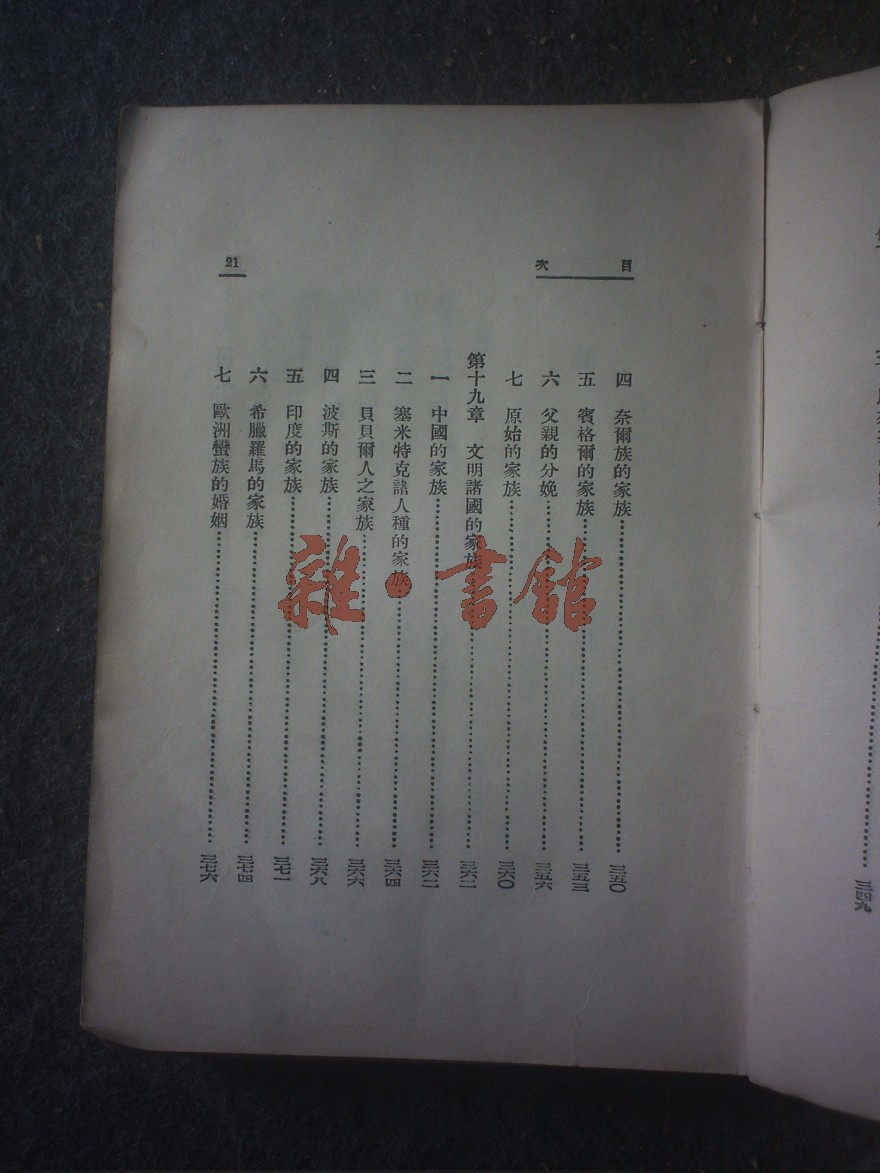 目次
21
四 奈爾族的家族……三五〇
五 賓格爾的家族……三五三
六 父親的分娩……三五六
七 原始的家族……三六〇
第十九章 文明諸國的家族……三六二
一 中國的家族……三六二
二 塞米特克諸人種的家族……三六四
三 貝貝爾人之家族……三六六
四 波斯的家族……三六八
五 印度的家族……三七一
六 希臘羅馬的家族……三七四
七 歐洲蠻族的婚姻……三七六
三四九
雜·書館